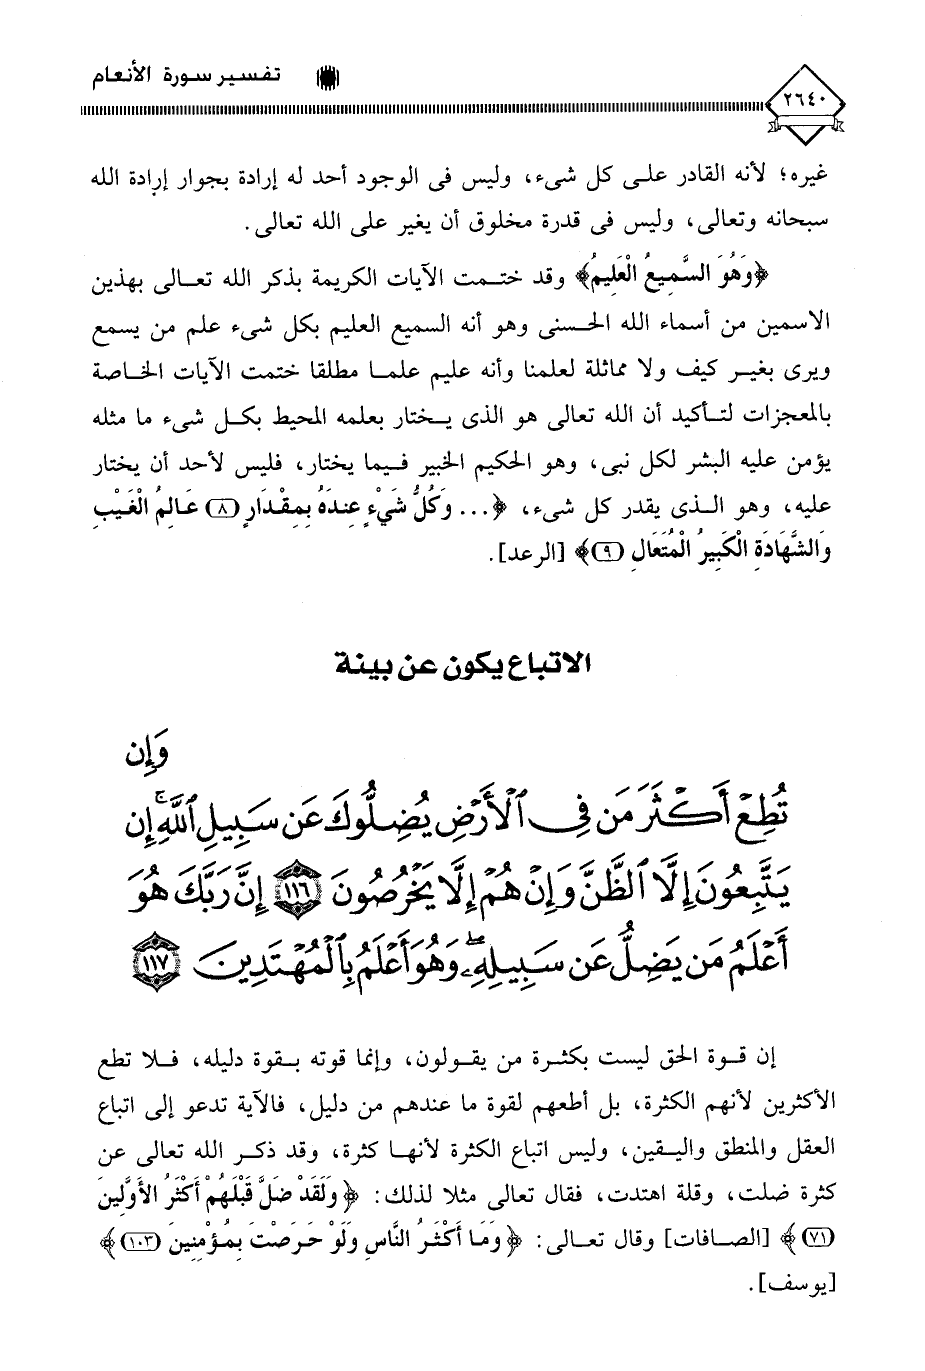 تفسير سورة الأنعام
٢٦٤٠
غيره؛ لأنه القادر على كل شىء، وليس فى الوجود أحد له إرادة بجوار إرادة الله
سبحانه وتعالى، وليس فى قدرة مخلوق أن يغير على الله تعالى.
﴿وَهُوَ السَّمِيعُ الْعَلِيمُ﴾ وقد ختمت الآيات الكريمة بذكر الله تعالى بهذين
الاسمين من أسماء الله الحسنى وهو أنه السميع العليم بكل شىء علم من يسمع
ويرى بغير كيف ولا مماثلة لعلمنا وأنه عليم علما مطلقا ختمت الآيات الخاصة
بالمعجزات لتأكيد أن الله تعالى هو الذى يختار بعلمه المحيط بكل شىء ما مثله
يؤمن عليه البشر لكل نبى، وهو الحكيم الخبير فيما يختار، فليس لأحد أن يختار
عليه، وهو الذى يقدر كل شىء، ﴿... وَكُلُّ شَيْءٍ عِندَهُ بِمِقْدَارٍ (٨) عَالِمُ الْغَيْبِ
وَالشَّهَادَةِ الْكَبِيرُ الْمُتَعَالِ (٩)﴾ [الرعد].
الاتباع يكون عن بينة
وَإِن
تُطِعْ أَكْثَرَ مَن فِى ٱلْأَرْضِ يُضِلُّوكَ عَن سَبِيلِ ٱللَّهِۚ إِن
يَتَّبِعُونَ إِلَّا ٱلظَّنَّ وَإِنْ هُمْ إِلَّا يَخْرُصُونَ ١١٦ إِنَّ رَبَّكَ هُوَ
أَعْلَمُ مَن يَضِلُّ عَن سَبِيلِهِۦۖ وَهُوَ أَعْلَمُ بِٱلْمُهْتَدِينَ ١١٧
إن قوة الحق ليست بكثرة من يقولون، وإنما قوته بقوة دليله، فلا تطع
الأكثرين لأنهم الكثرة، بل أطعهم لقوة ما عندهم من دليل، فالآية تدعو إلى اتباع
العقل والمنطق واليقين، وليس اتباع الكثرة لأنها كثرة، وقد ذكر الله تعالى عن
كثرة ضلت، وقلة اهتدت، فقال تعالى مثلا لذلك: ﴿وَلَقَدْ ضَلَّ قَبْلَهُمْ أَكْثَرُ الأَوَّلِينَ
(٧١)﴾ [الصافات] وقال تعالى: ﴿وَمَا أَكْثَرُ النَّاسِ وَلَوْ حَرَصْتَ بِمُؤْمِنِينَ (١٠٣)﴾
[يوسف].